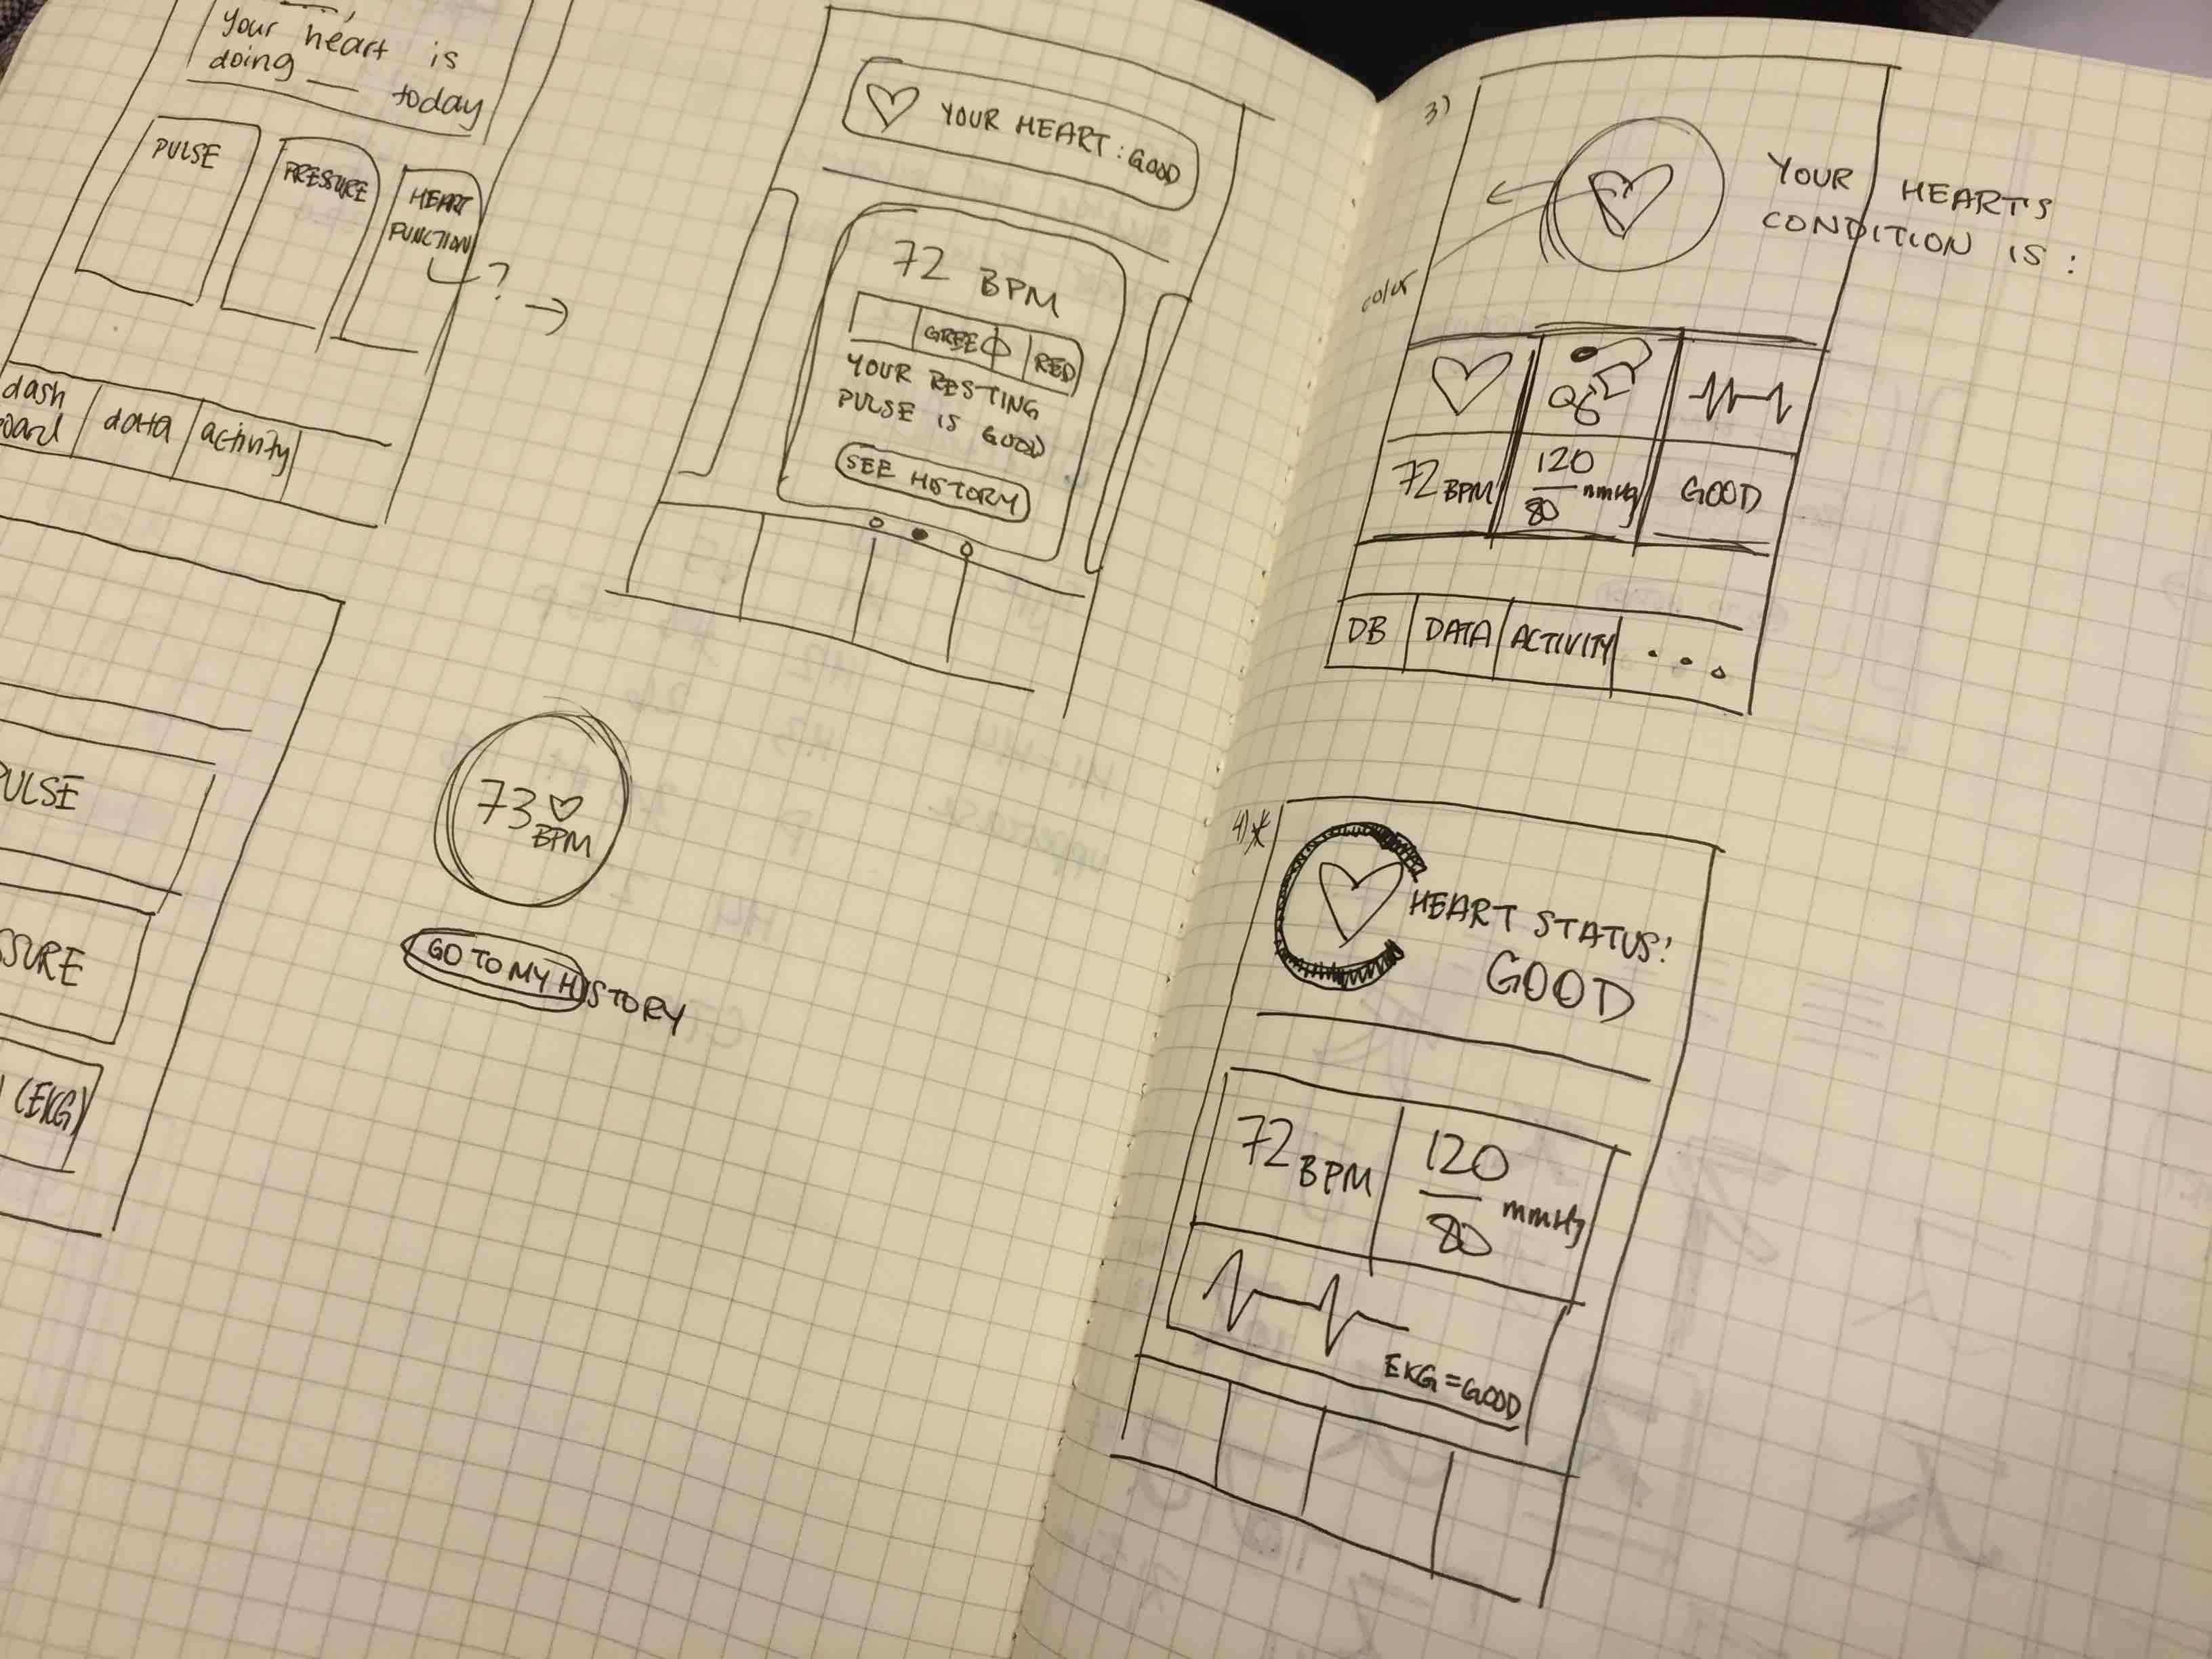 your heart is
doing __ today
PULSE
PRESSURE
HEART
FUNCTION
?
dash
data
activity
YOUR HEART : GOOD
72 BPM
GREEN
RED
YOUR RESTING
PULSE IS GOOD
SEE HISTORY
PULSE
SSURE
(EKG)
73
BPM
GO TO MY HISTORY
3)
YOUR HEART'S
CONDITION IS :
color
72 BPM
120
80
mmHg
GOOD
DB
DATA
ACTIVITY
...
4)*
HEART STATUS:
GOOD
72 BPM
120
80
mmHg
EKG = GOOD